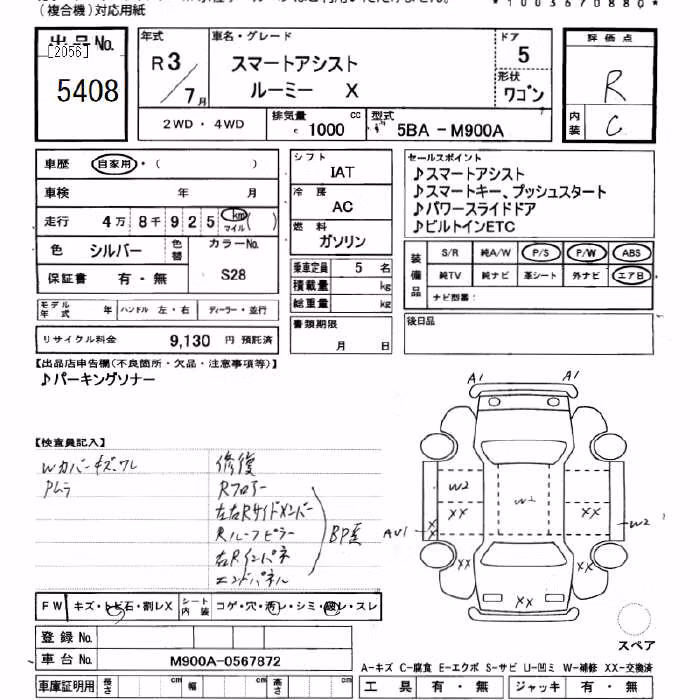 (複合機)対応用紙
*1003670880*
出品No.
[2056]
5408
年式
R3/7月
車名・グレード
スマートアシスト
ルーミー X
ドア
5
形状
ワゴン
評価点
R
内装
C
2WD・4WD
排気量
cc
1000
型式
5BA-M900A
車歴
自家用・( )
車検 年 月
走行 4万8千925 km マイル ( )
色 シルバー
色替
カラーNo.
S28
保証書 有・無
モデル年式 年
ハンドル 左・右
ディーラー・並行
リサイクル料金 9,130 円 預託済
シフト
IAT
冷房
AC
燃料
ガソリン
乗車定員 5 名
積載量 kg
総重量 kg
書類期限
月 日
セールスポイント
♪スマートアシスト
♪スマートキー、プッシュスタート
♪パワースライドドア
♪ビルトインETC
装備品
S/R 純A/W P/S P/W ABS
純TV 純ナビ 革シート 外ナビ エアB
ナビ型番:
後日品
【出品店申告欄(不良箇所・欠品・注意事項等)】
♪パーキングソナー
【検査員記入】
Wカバーキズワレ
Pムラ
修復
Rフロアー
左右Rサイドメンバー
Rルーフピラー
右Rインパネ
エンドパネル
BP歪
A1 A1
W2
W1
XX
XX
AU1
W2
XX
XX
XX
FW キズ・トビ石・割レX
シート内装 コゲ・穴・汚レ・シミ・破レ・スレ
登録No.
車台No. M900A-0567872
車庫証明用 長さ cm 幅 cm 高さ cm
スペア
A-キズ C-腐食 E-エクボ S-サビ U-凹ミ W-補修 XX-交換済
工具 有・無 ジャッキ 有・無